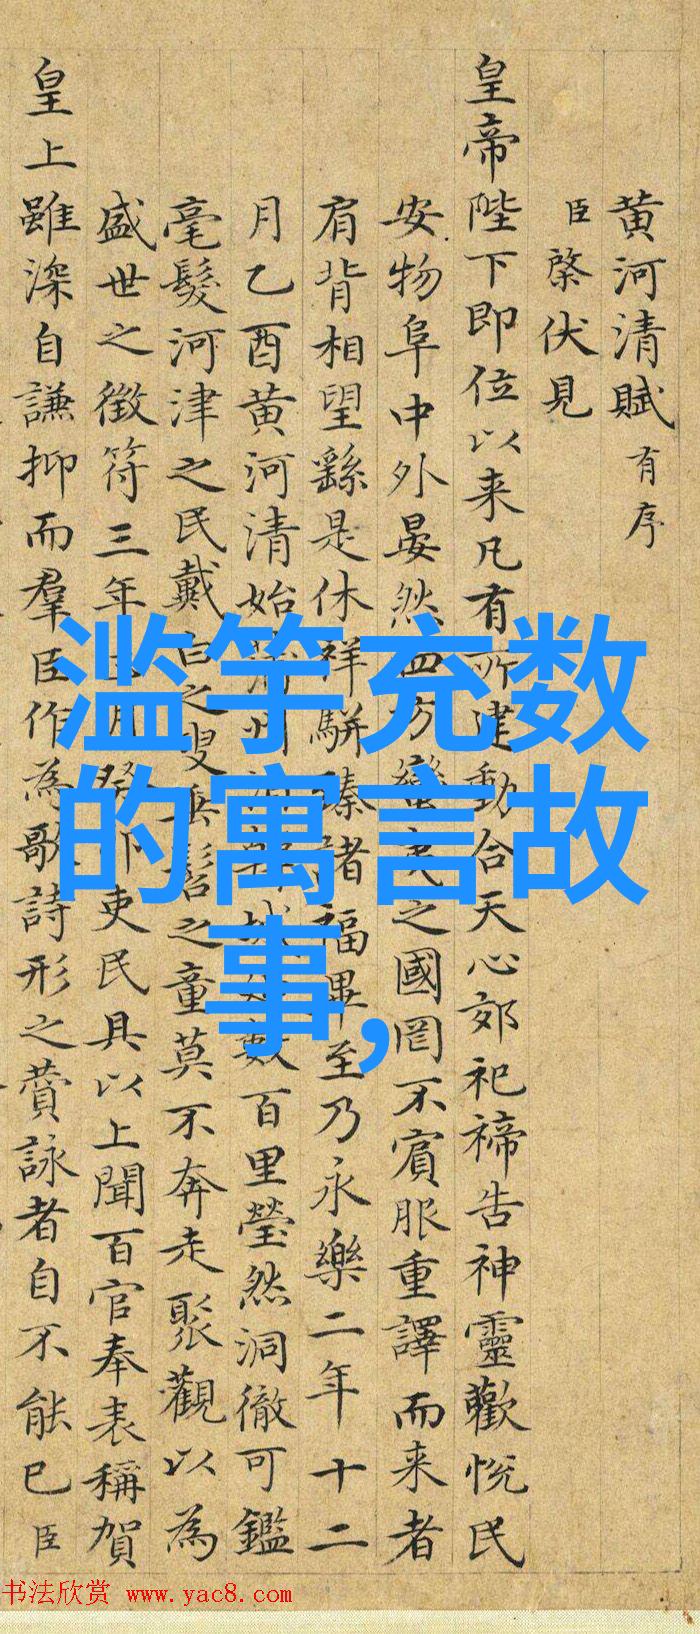 黄河清賦 有序
臣棨伏見
皇帝陛下即位以来凡有所建動合天心郊祀禘告神靈歡悦民
安物阜中外晏然四方蠻夷之國罔不賓服重譯而来者
肩背相望繇是休祥駢臻諸福畢至乃永樂二年十二
月乙酉黄河清始州城數百里瑩然洞徹可鑑
毫髮河津之民戴白之叟垂髫之童莫不奔走聚觀以為
盛世之徵符三年月吏民具以上聞百官奉表稱賀
皇上雖深自謙抑而羣臣作為歌詩形之賛詠者自不能已臣
滥竽充数
的寓言故
事,
书法欣赏 www.yac8.com